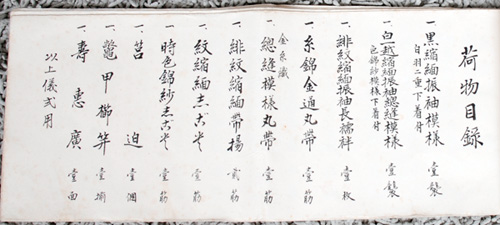 荷物目録
一、黒縮緬振袖模様 壹襲
白羽二重下着付
一、白越縮緬振袖總縫模様 壹襲
色錦紗模様下着付
一、緋紋縮緬振袖長襦袢 壹枚
一、糸錦金通丸帯 壹筋
金糸織
一、總縫模様丸帯 壹筋
一、緋紋縮緬帯揚 貳筋
一、紋縮緬志古き 壹筋
一、時色錦紗志古き 壹筋
一、筥迫 壹個
一、鼈甲櫛笄 壹揃
一、壽恵廣 壹面
以上儀式用